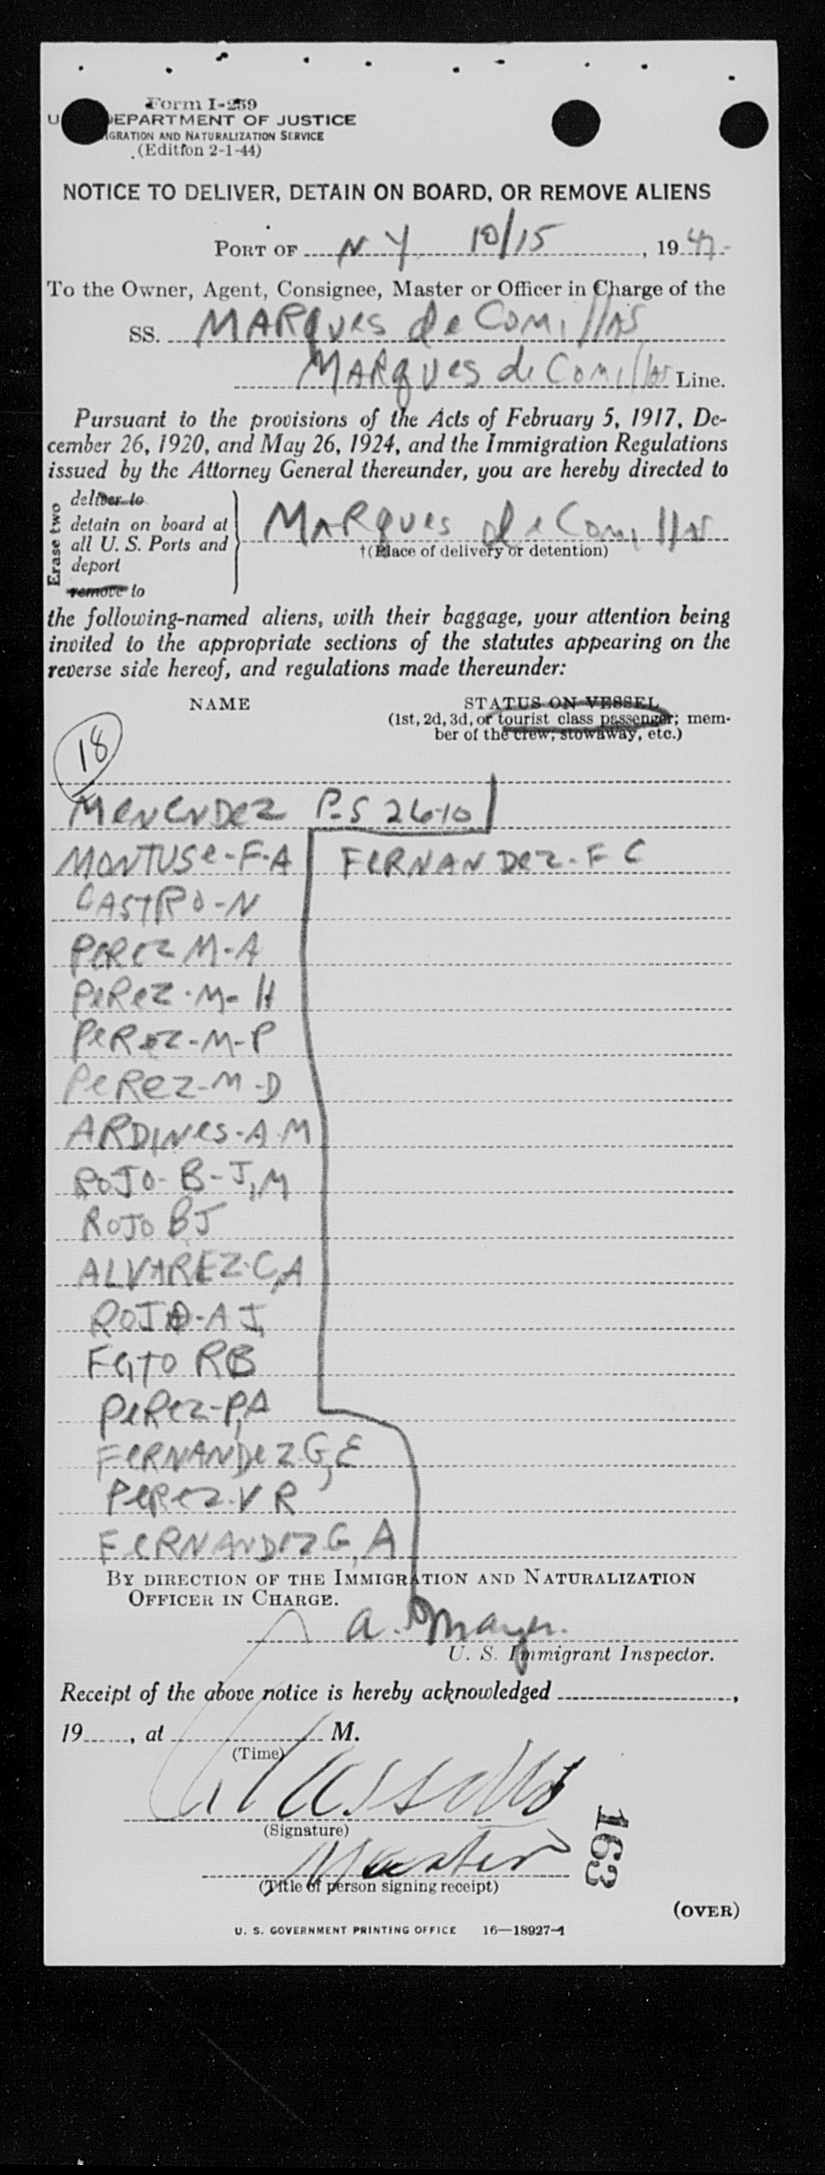 Form I-259
U DEPARTMENT OF JUSTICE
GRATION AND NATURALIZATION SERVICE
(Edition 2-1-44)
NOTICE TO DELIVER, DETAIN ON BOARD, OR REMOVE ALIENS
PORT OF N Y 10/15, 1947
To the Owner, Agent, Consignee, Master or Officer in Charge of the
SS. MARques de Comillas
MARques de Comillas Line.
Pursuant to the provisions of the Acts of February 5, 1917, De-
cember 26, 1920, and May 26, 1924, and the Immigration Regulations
issued by the Attorney General thereunder, you are hereby directed to
Erase two
deliver to
detain on board at
all U. S. Ports and
deport
remove to
MARques de Comillas
†(Place of delivery or detention)
the following-named aliens, with their baggage, your attention being
invited to the appropriate sections of the statutes appearing on the
reverse side hereof, and regulations made thereunder:
NAME STATUS ON VESSEL
(1st, 2d, 3d, or tourist class passenger; mem-
ber of the crew, stowaway, etc.)
18
MENENDEZ P-S 2610
MONTUSE-F-A FERNANDEZ-F C
CASTRO-N
PEREZ M-A
PEREZ-M-H
PEREZ-M-P
PEREZ-M-D
ARDINES-A M
ROJO-B-J,M
ROJO BJ
ALVAREZ-C,A
ROJO-A J,
FGTO RB
PEREZ-P,A
FERNANDEZ G,E
PEREZ-V R
FERNANDEZ G, A
BY DIRECTION OF THE IMMIGRATION AND NATURALIZATION
OFFICER IN CHARGE.
a. Mayer.
U. S. Immigrant Inspector.
Receipt of the above notice is hereby acknowledged ,
19 , at M.
(Time)
(Signature)
Master
(Title of person signing receipt)
163
(OVER)
U. S. GOVERNMENT PRINTING OFFICE 16—18927-1